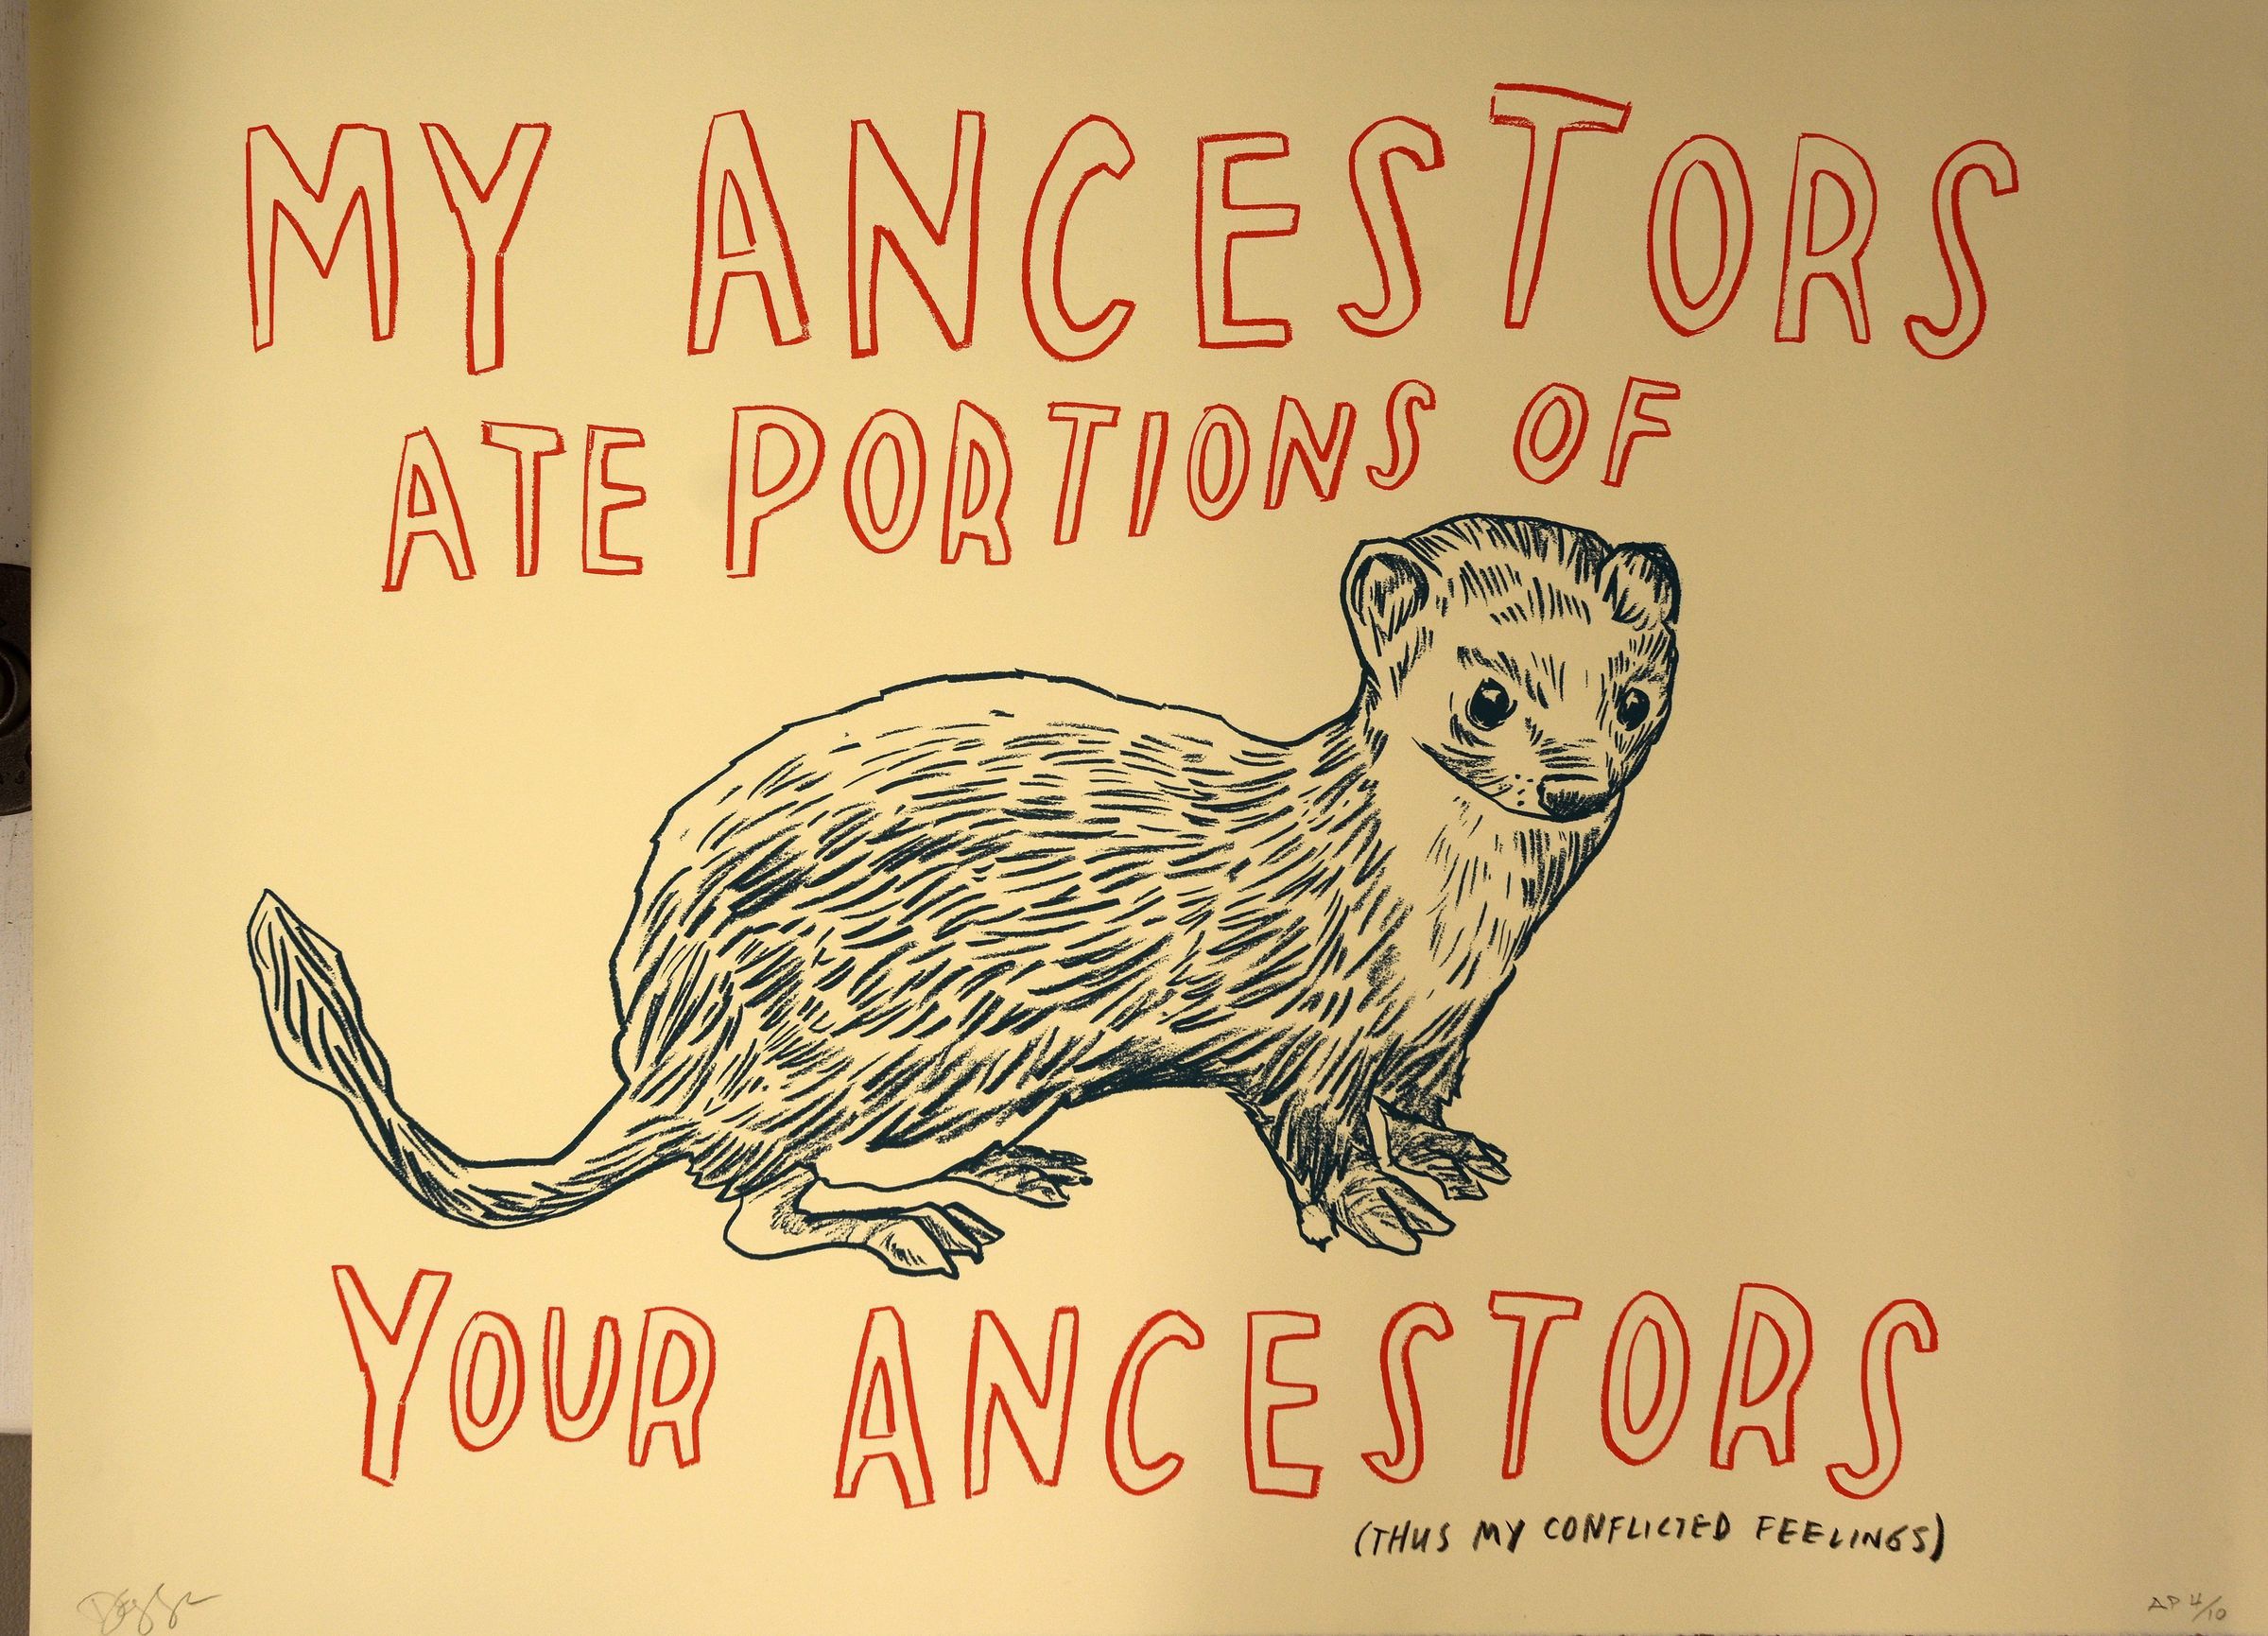 MY ANCESTORS
ATE PORTIONS OF
YOUR ANCESTORS
(THUS MY CONFLICTED FEELINGS)
AP 4/10